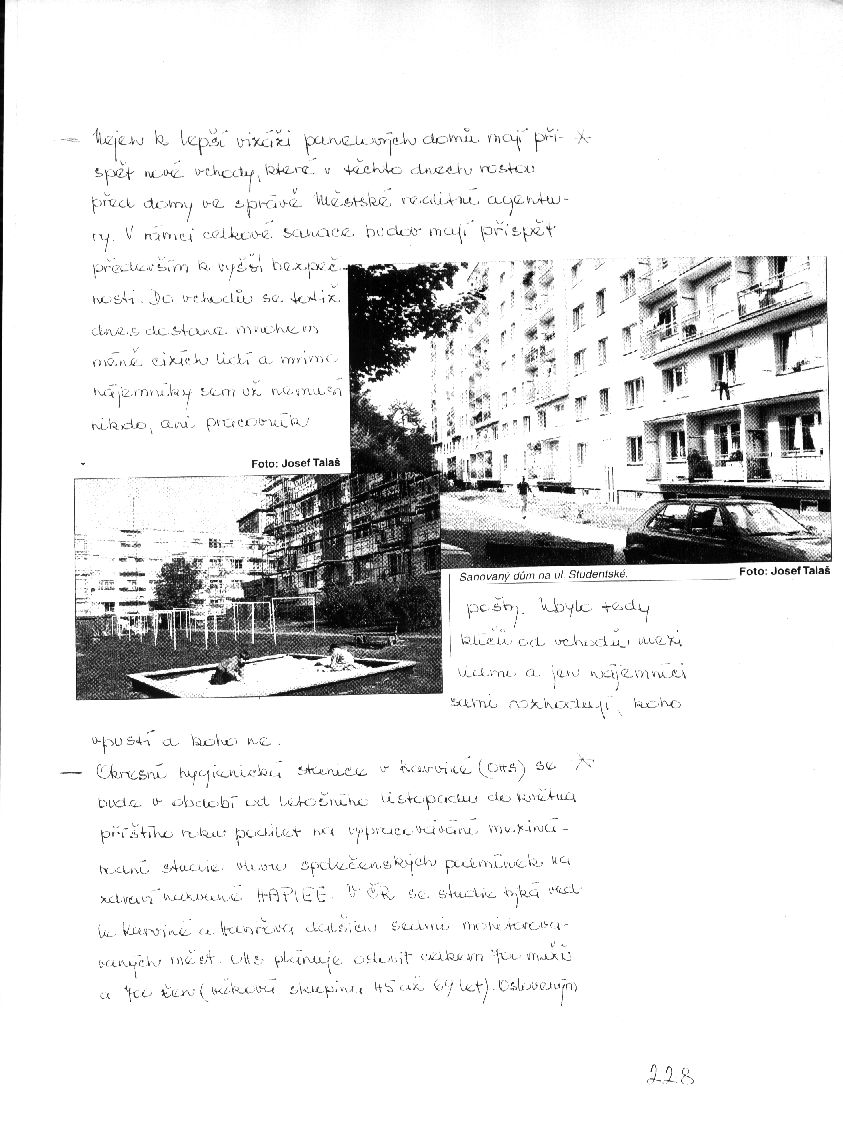 — Nejen k lepší vizáži panelových domů mají při- ×
spět nové vchody, které v těchto dnech rostou
před domy ve správě Městské realitní agentu-
ry. V rámci celkové sanace budov mají přispět
především k vyšší bezpeč
nosti. Do vchodů se totiž
dnes dostane mnohem
méně cizích lidí a mimo
nájemníky sem už nemusí
nikdo, ani pracovník
Foto: Josef Talaš
Sanovaný dům na ul. Studentské.
Foto: Josef Talaš
pošty. Ubylo tedy
klíčů od vchodů mezi
lidmi a jen nájemníci
sami rozhodují, koho
vpustí a koho ne.
— Okresní hygienická stanice v Karviné (OHS) se ×
bude v období od letošního listopadu do května
příštího roku podílet na vypracovávání meziná-
rodní studie vlivu společenských podmínek na
zdraví nazvané HAPIEE. V ČR se studie týká ved
le Karviné a Havířova dalších sedmi monitoro-
vaných měst. OHS plánuje oslovit celkem mužů
a žen (věková skupina 45 až 69 let). Osloveným
228